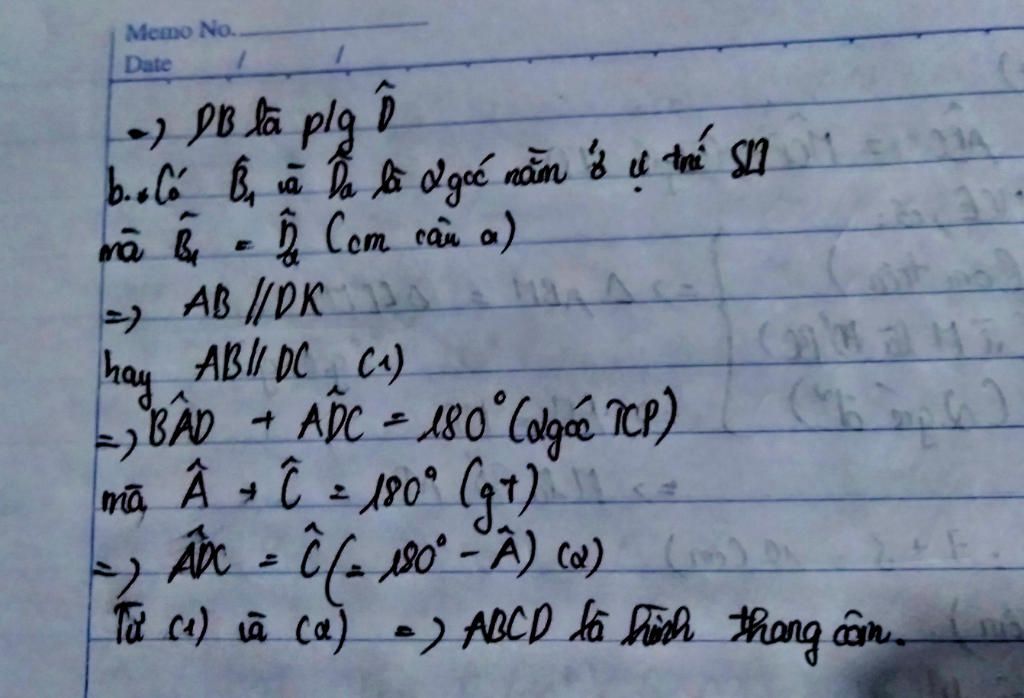 Memo No.
Date / /
=> DB là p/g D̂
b. Có B̂₁ và D̂₂ là 2 góc nằm ở vị trí SLT
mà B̂₁ = D̂₂ (cm câu a)
=> AB // DK
hay AB // DC (1)
=> BÂD + AD̂C = 180° (2 góc TCP)
mà Â + Ĉ = 180° (gt)
=> AD̂C = Ĉ (= 180° - Â) (2)
Từ (1) và (2) => ABCD là hình thang cân.